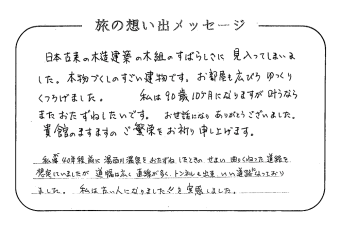 旅の想い出メッセージ
日本古来の木造建築の木組のすばらしさに 見入ってしまいま
した。本物づくしのすごい建物です。お部屋も広びろ ゆっくり
くつろげました。 私は90歳10ヶ月になりますが 叶うなら
またおたずねしたいです。お世話になり ありがとうございました。
貴館のますますの ご繁栄をお祈り申し上げます。
私達40年程前に湯西川温泉をおたずねしたときの せまい 曲りくねった 道路を
想像していましたが 道幅は広く 直線が多く、トンネルも出来、いい道路になっており
ました。 私は古い人になりました!!を実感しました。